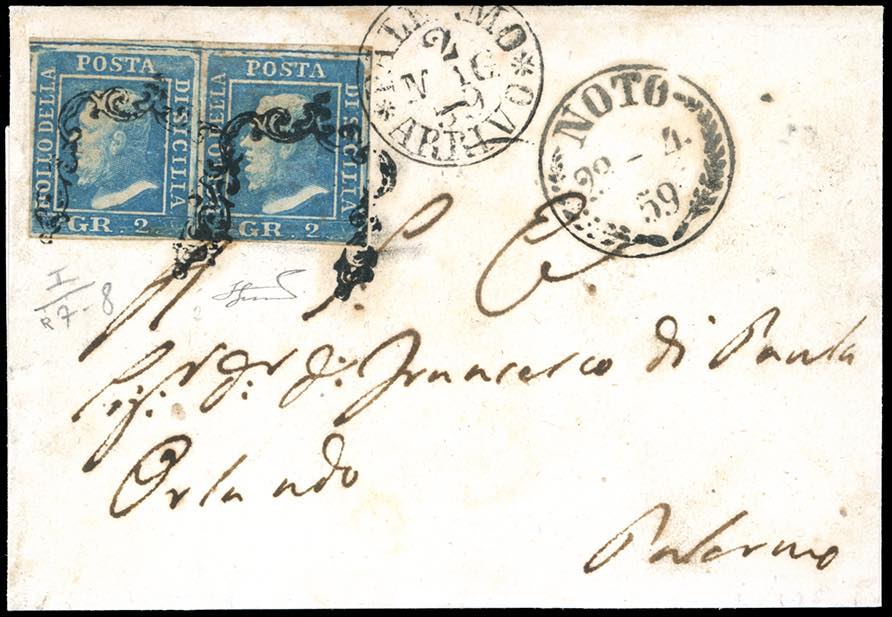 POSTA POSTA
BOLLO DELLA DI SICILIA BOLLO DELLA DI SICILIA
GR. 2. GR. 2
PALERMO
2
MAG
59
*ARRIVO*
NOTO
28 - 4.
59
I
R 7-8
A S. E.
Sig.r d.n d.r Francesco di Paula
Orlando
Palermo